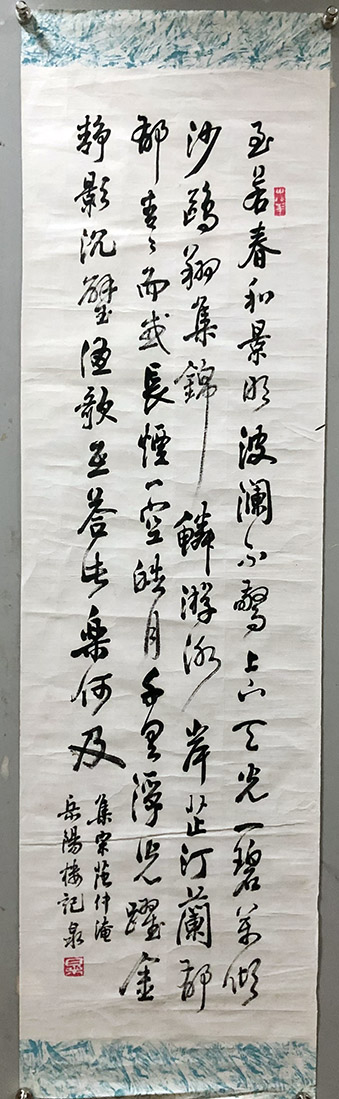 至若春和景明波澜不驚上下天光一碧万傾
沙鷗翔集錦鱗游泳岸芷汀蘭郁
郁青々而或長煙一空皓月千里浮光躍金
静影沉璧渔歌互答此楽何及
集宋范仲淹
岳陽楼記泉